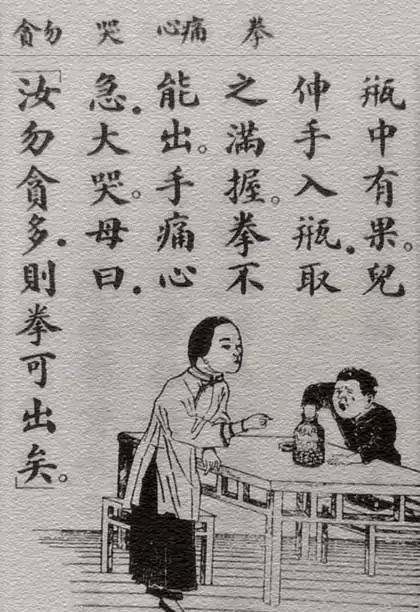 拳 痛心 哭 勿貪
瓶中有果。兒
伸手入瓶。取
之滿握。拳不
能出。手痛心
急。大哭。母曰。
「汝勿貪多。則拳可出矣。」